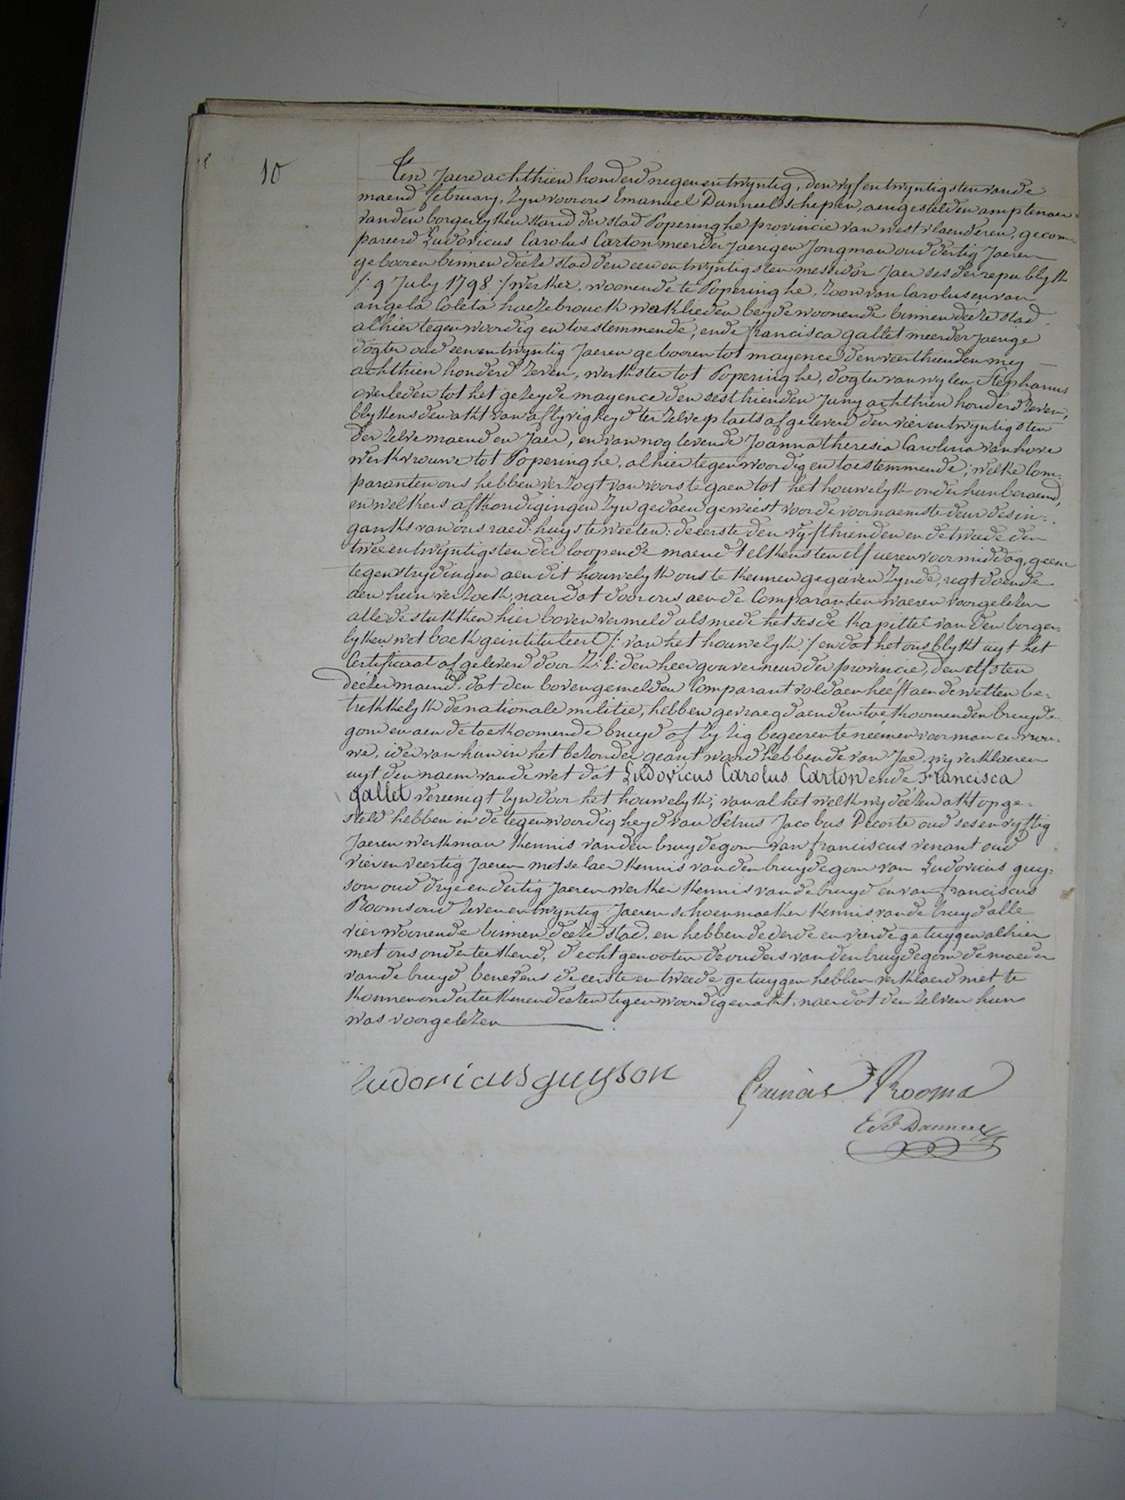 10
Ten Jaere achthien honderd negenentwyntig, den vyfentwyntigsten van de
maend february, Zyn voor ons Emanuel Danneel schepen, aengestelden amptenaer
van den borgerlyken stand der stad Poperinghe provincie van westvlaenderen, gecom-
pareerd Ludovicus Carolus Carton meerderjaerigen Jongman oud dertig Jaeren
geboren binnen deeze stad den eenentwyntigsten messidor Jaer ses der republyk
/: 9 July 1798 :/ werker, woonende te Poperinghe, zoon van Carolus en van
angela Coleta haezebrouck werklieden beyde woonende binnen deeze stad
alhier tegenwoordig en toestemmende, ende francisca gallet meerderjaerige
dogter oud eenentwyntig Jaeren geboren tot mayence den veerthienden mey
achthien honderd zeven, werkster tot Poperinghe, dogter van wylen Stephanus
overleden tot het gezeyde mayence den sesthienden Juny achthien honderd zeven,
blykens den akt van aflyvigheyd ter zelve plaets afgeleverd den vierentwyntigsten
der zelve maend en Jaer, en van nog levende Joanna theresia Carolina vanhove
werkvrouwe tot Poperinghe, alhier tegenwoordig en toestemmende, welke Com-
paranten ons hebben verzogt van voorstegaen tot het houwelyk onder hun beraemd,
en welkers afkondigingen zyn gedaen geweest voor de voornaemste deur des in-
gangks van ons raedhuys te weeten: de eerste den vyfthienden en de tweede den
tweeentwyntigsten der loopende maend telkens ten elf ueren voormiddag, geene
tegenstrydingen aen dit houwelyk ons te kennen gegeeven zynde, regt doende
aen hun verzoek, naer dat door ons aen de Comparanten waeren voorgelezen
alle de stukken hier boven vermeld als mede het sesde kapittel van den borger-
lyken wetboek geintituleert /: van het houwelyk :/ en dat het ons blykt uyt het
Certificaat afgeleverd door Z: E: den heer gouverneur der provincie, den elfsten
deezer maend, dat den bovengemelden Comparant voldaen heeft aen de wetten be-
trekkelyk de nationale militie, hebben gevraegd aen den toekoomenden bruyde-
gom en aen de toekoomende bruyd of zy zig begeeren te neemen voor man en vrou-
we, ider van hun in het bezonder geantwoord hebbende van Jae, wy verklaeren
uyt den naem van de wet dat Ludovicus Carolus Carton ende Francisca
gallet vereenigt zyn door het houwelyk; van al het welk wy deezen akt opge-
steld hebben in de tegenwoordigheyd van Petrus Jacobus Decorte oud sesenvyftig
Jaeren werkman kennis van den bruydegom van franciscus venant oud
vierenveertig Jaeren metselaer kennis van den bruydegom van Ludovicus guy-
son oud dryeendertig Jaeren werker kennis van de bruyd en van franciscus
Rooms oud zevenentwyntig Jaeren schoenmaeker kennis van de bruyd alle
vier woonende binnen deeze stad, en hebben de derde en vierde getuygen alhier
met ons onderteekend, d'echtgenooten de ouders van den bruydegom de moeder
van de bruyd benevens de eerste en tweede getuygen hebben verklaerd niet te
konnen onderteekenen deezen tegenwoordigen akt, naer dat den zelven hun
was voorgelezen
ludovicus guyson
Francis Rooms
E J Danneel